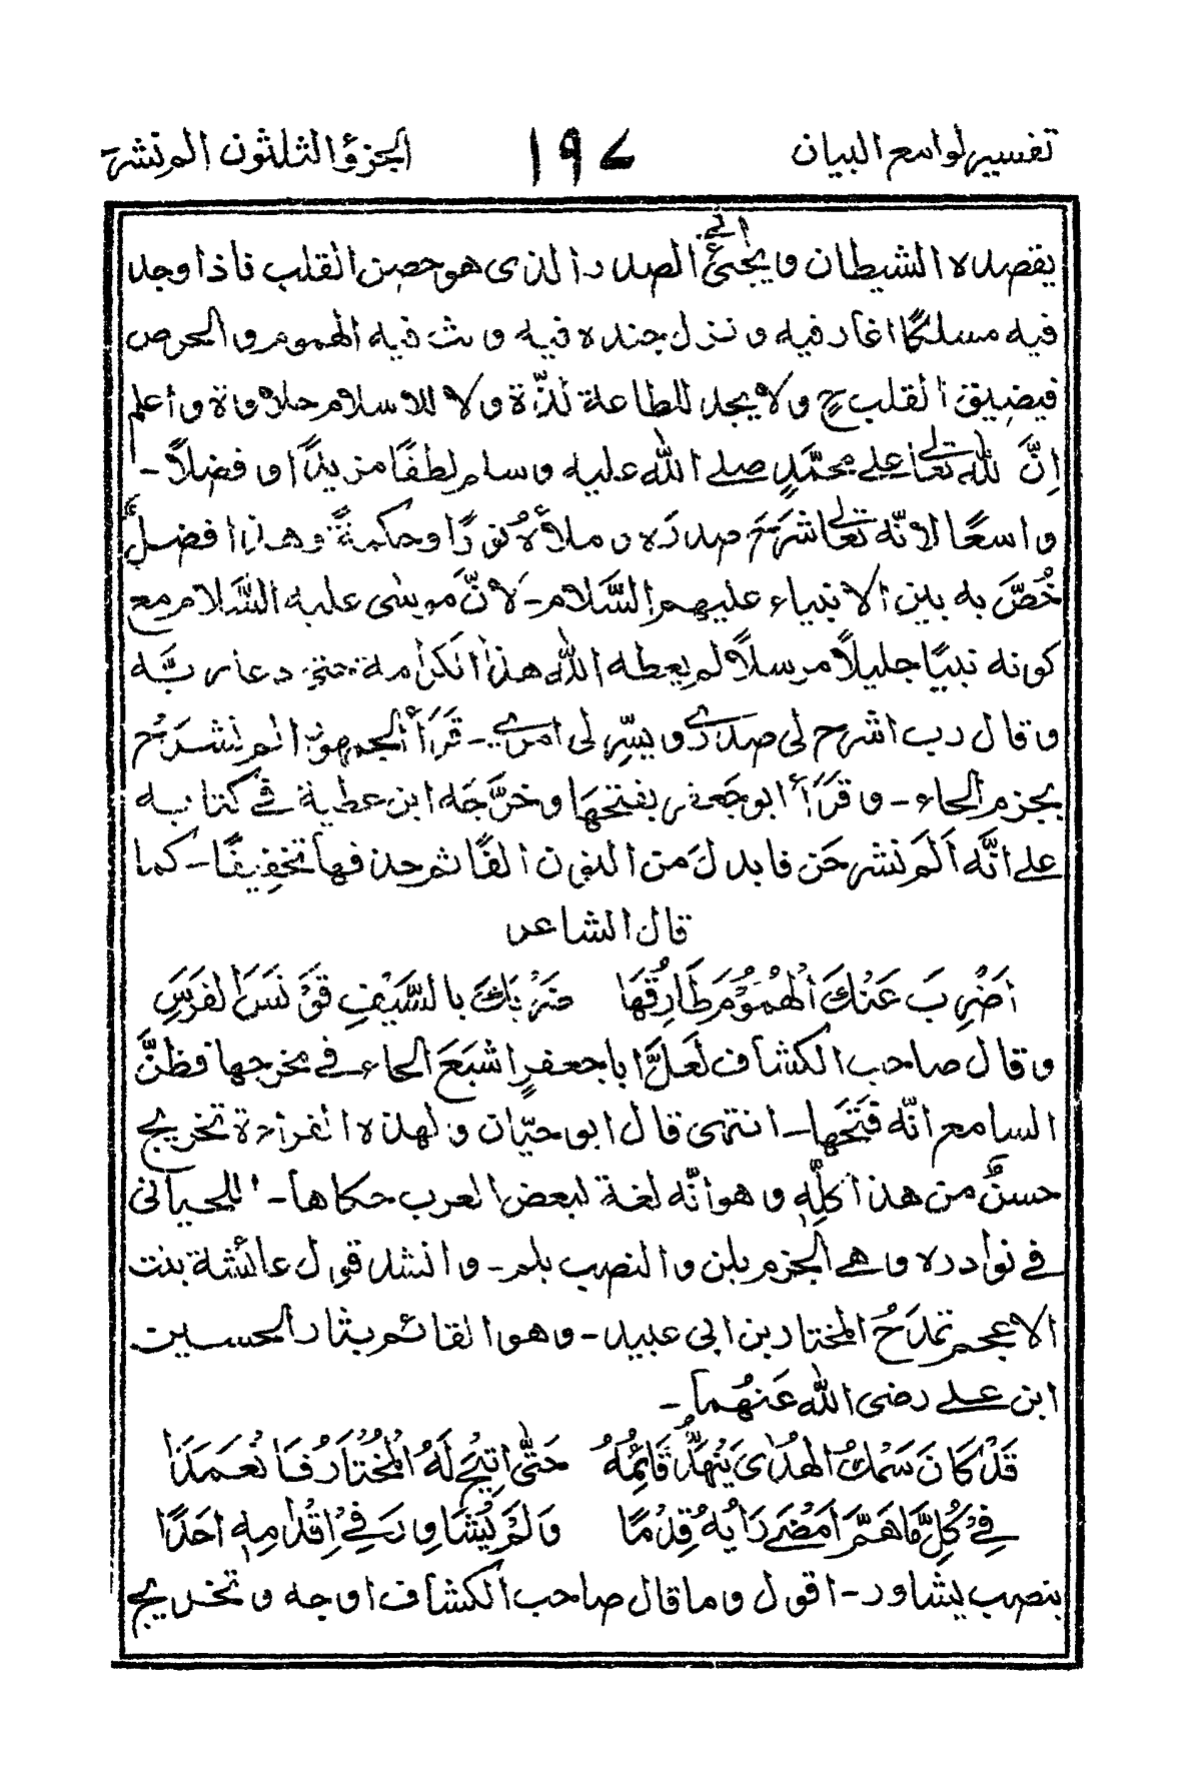 تفسير لوامع البيان ١٩٧ الجزؤ الثلثون الم نشرح
يقصده الشيطان ويجئ الى الصدر الذى هو حصن القلب فاذا وجد
فيه مسلكًا اغار فيه ونزل جنده فيه وبث فيه الهموم والحرص
فيضيق القلب ح ولا يجد للطاعة لذّة ولا للاسلام حلاوة واعلم
اِنَّ لله تعالى على محمّدٍ صلى الله عليه وسلم لطفًا مزيدًا وفضلاً-
واسعًا لانّه تعالى شَرَحَ صدرَه وملأهُ نورًا وحكمةً وهذا فضلٌ
خُصَّ به بين الانبياء عليهم السَّلام- لانَّ موسٰى عليه السَّلام مع
كونه نبيًا جليلاً مرسلاً لم يعطه الله هذا الكرامة حتى دعا ربَّه
وقال رب اشرح لى صدرى ويسِّر لى امرى- قَرَأَ الجمهور الم نشرَحْ
بجزم الحاء- وقَرَأَ ابو جَعفر بفتحهَا وخرَّجَه ابن عطية فى كتابه
على انَّه اَلَم نشرحَن فابدلَ من النون الفًا ثم حذفها تخفِيفًا- كما
قال الشاعر
اَضْرِبَ عَنْكَ الْهُمُوْمَ طَارِقُهَا ضَرْبَكَ بِالسَّيْفِ قَوْنَسَ الفَرَسِ
وقال صاحب الكشاف لَعَلَّ ابا جعفرٍ اشبَعَ الحاء فى مخرجها فظنَّ
السامع انّه فَتَحَها- انتهى قال ابو حيّان ولهذه القراءة تخريج
حسنٌ من هذا كلِّهٖ وهو انّه لغة لبعض العرب حكاها- اللحيانى
فى نوادره وهى الجزم بلن والنصب بلم- وانشد قول عائشة بنت
الاعجم تمدَحُ المختار بن ابى عبيد- وهو القائم بثار الحسين
ابن على رضى الله عَنهُما-
قَدْ كَانَ سَمْكُ الهُدٰى يَنْهَدُّ قَائِمُهُ حَتّٰى اُتِيْحَ لَهُ الْمُخْتَارُ فَانْعَمَدَا
فِىْ كُلِّ مَا هَمَّ اَمْضٰى رَأيُهُ قِدْمًا وَلَمْ يُشَاوِرَ فِىْ اِقْدَامِهٖ اَحَدًا
بنصب يشاور- اقول وما قال صاحب الكشاف اوجه وتخريج